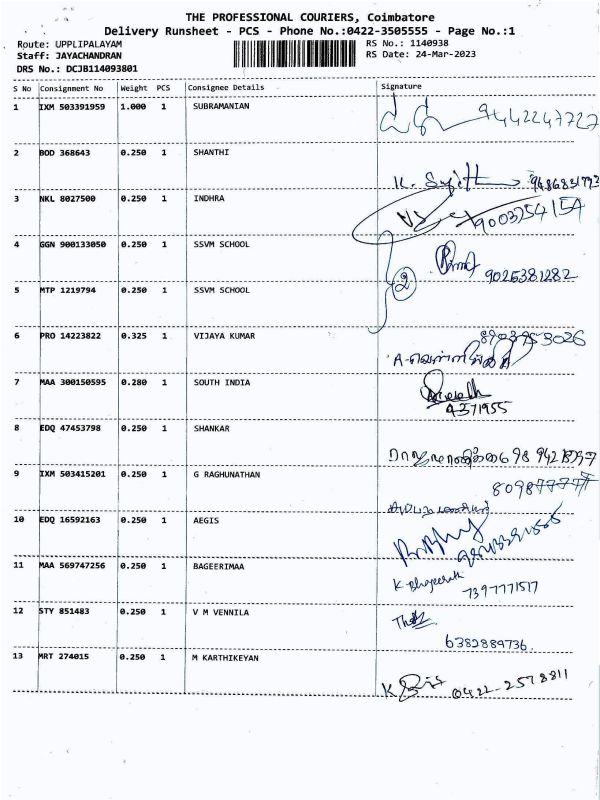 THE PROFESSIONAL COURIERS, Coimbatore
Delivery Runsheet - PCS - Phone No.:0422-3505555 - Page No.:1
Route: UPPLIPALAYAM RS No.: 1140938
Staff: JAYACHANDRAN RS Date: 24-Mar-2023
DRS No.: DCJB114093801
S No Consignment No Weight PCS Consignee Details Signature
1 IXM 503391959 1.000 1 SUBRAMANIAN 9442247727
2 BOD 368643 0.250 1 SHANTHI
K. 9486831792
3 NKL 8027500 0.250 1 INDHRA
9003254154
4 GGN 900133050 0.250 1 SSVM SCHOOL
2 9025381282
5 MTP 1219794 0.250 1 SSVM SCHOOL
6 PRO 14223822 0.325 1 VIJAYA KUMAR
7 MAA 300150595 0.280 1 SOUTH INDIA
4371955
8 EDQ 47453798 0.250 1 SHANKAR
9 IXM 503415201 0.250 1 G RAGHUNATHAN
10 EDQ 16592163 0.250 1 AEGIS
11 MAA 569747256 0.250 1 BAGEERIMAA
K Bhageerath
7397771517
12 STY 851483 0.250 1 V M VENNILA
6382889736.
13 MRT 274015 0.250 1 M KARTHIKEYAN
K 0422-2578811